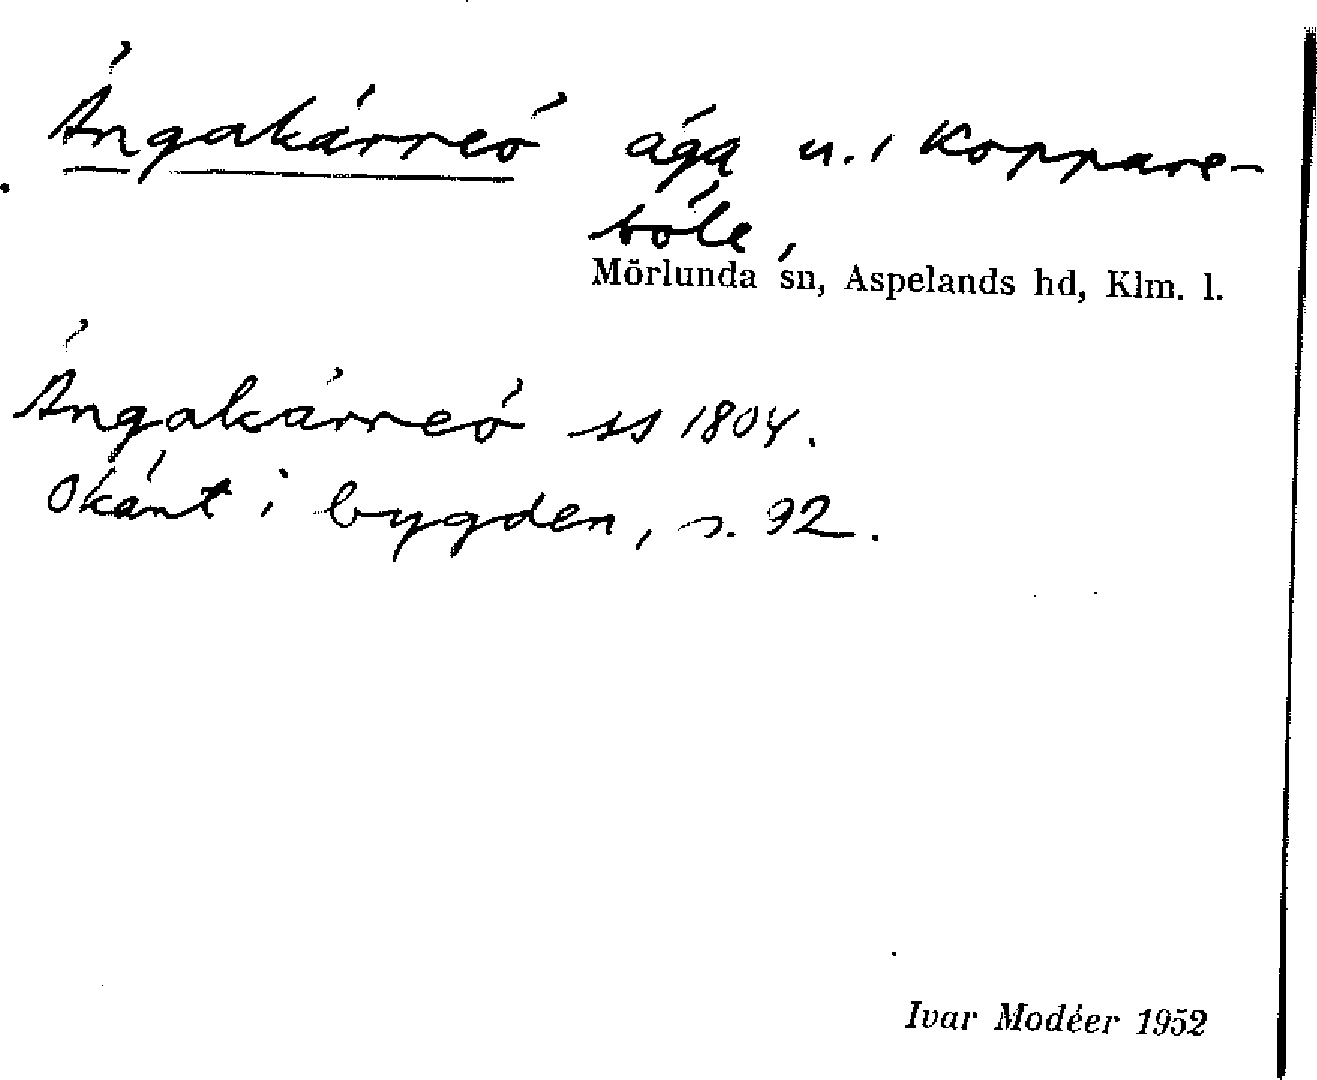 Ängakärreö äga u. i Koppare-
böle,
Mörlunda sn, Aspelands hd, Klm. l.
Ängakärreö ss 1804.
Okänt i bygden, s. 92.
Ivar Modéer 1952